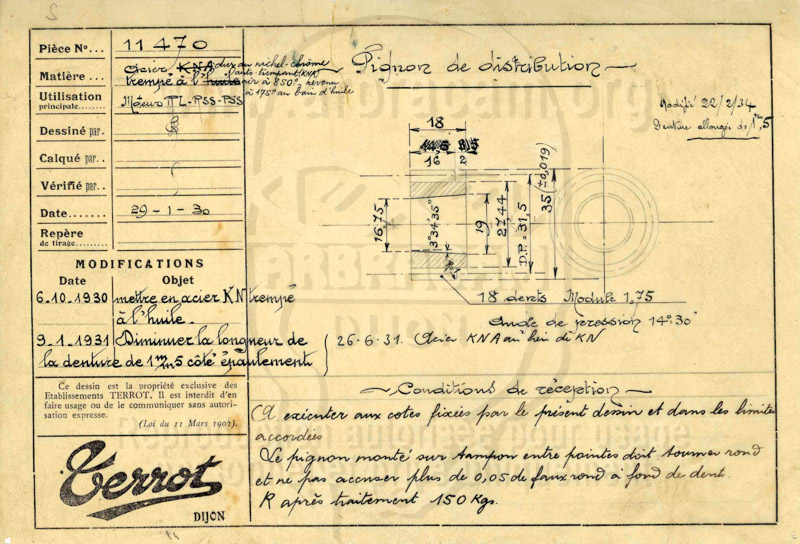 Pièce N°... 11470
Matière... Acier KNA dux au nichel-chrôme
autotrempant (KNA)
trempé à l'huile air à 850°, revenu
à 175° au bain d'huile
Utilisation
principale...
Dessiné par.
Calqué par..
Vérifié par..
Date....... 29-1-30
Repère
de tirage.......
MODIFICATIONS
Date Objet
6.10.1930 mettre en acier KN trempé
à l'huile.
9.1.1931 Diminuer la longueur de
la denture de 1 m/m 5 côté épaulement
26.6.31. Acier KNA au lieu de KN
Ce dessin est la propriété exclusive des
Etablissements TERROT. Il est interdit d'en
faire usage ou de le communiquer sans autori-
sation expresse.
(Loi du 11 Mars 1902).
Terrot
DIJON
Pignon de distribution
Modifié 22/2/34
Denture allongée de 1m,5
18
16
2
16.75
3°34'35"
19
27.44
D.P. = 31,5
35 (±0,019)
18 dents Module 1,75
Angle de pression 14°30'
Conditions de réception
A exécuter aux cotes fixées par le présent dessin et dans les limites
accordées
Le pignon monté sur tampon entre pointes doit tourner rond
et ne pas accuser plus de 0,05 de faux rond à fond de dent.
R après traitement 150 Kgs.